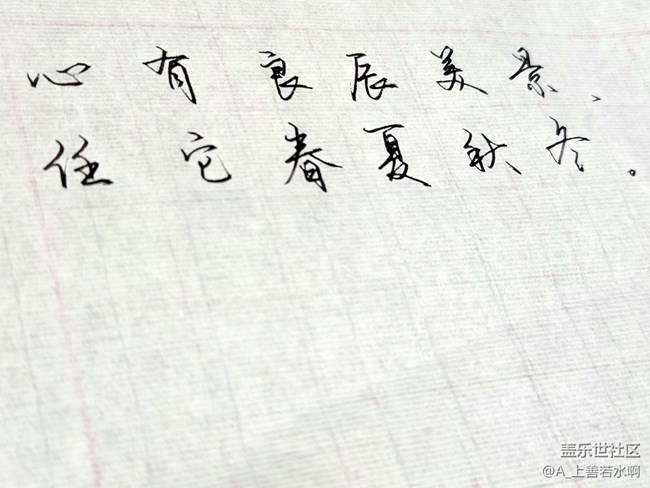 心有良辰美景、
任它春夏秋冬。
盖乐世社区
@A_上善若水啊